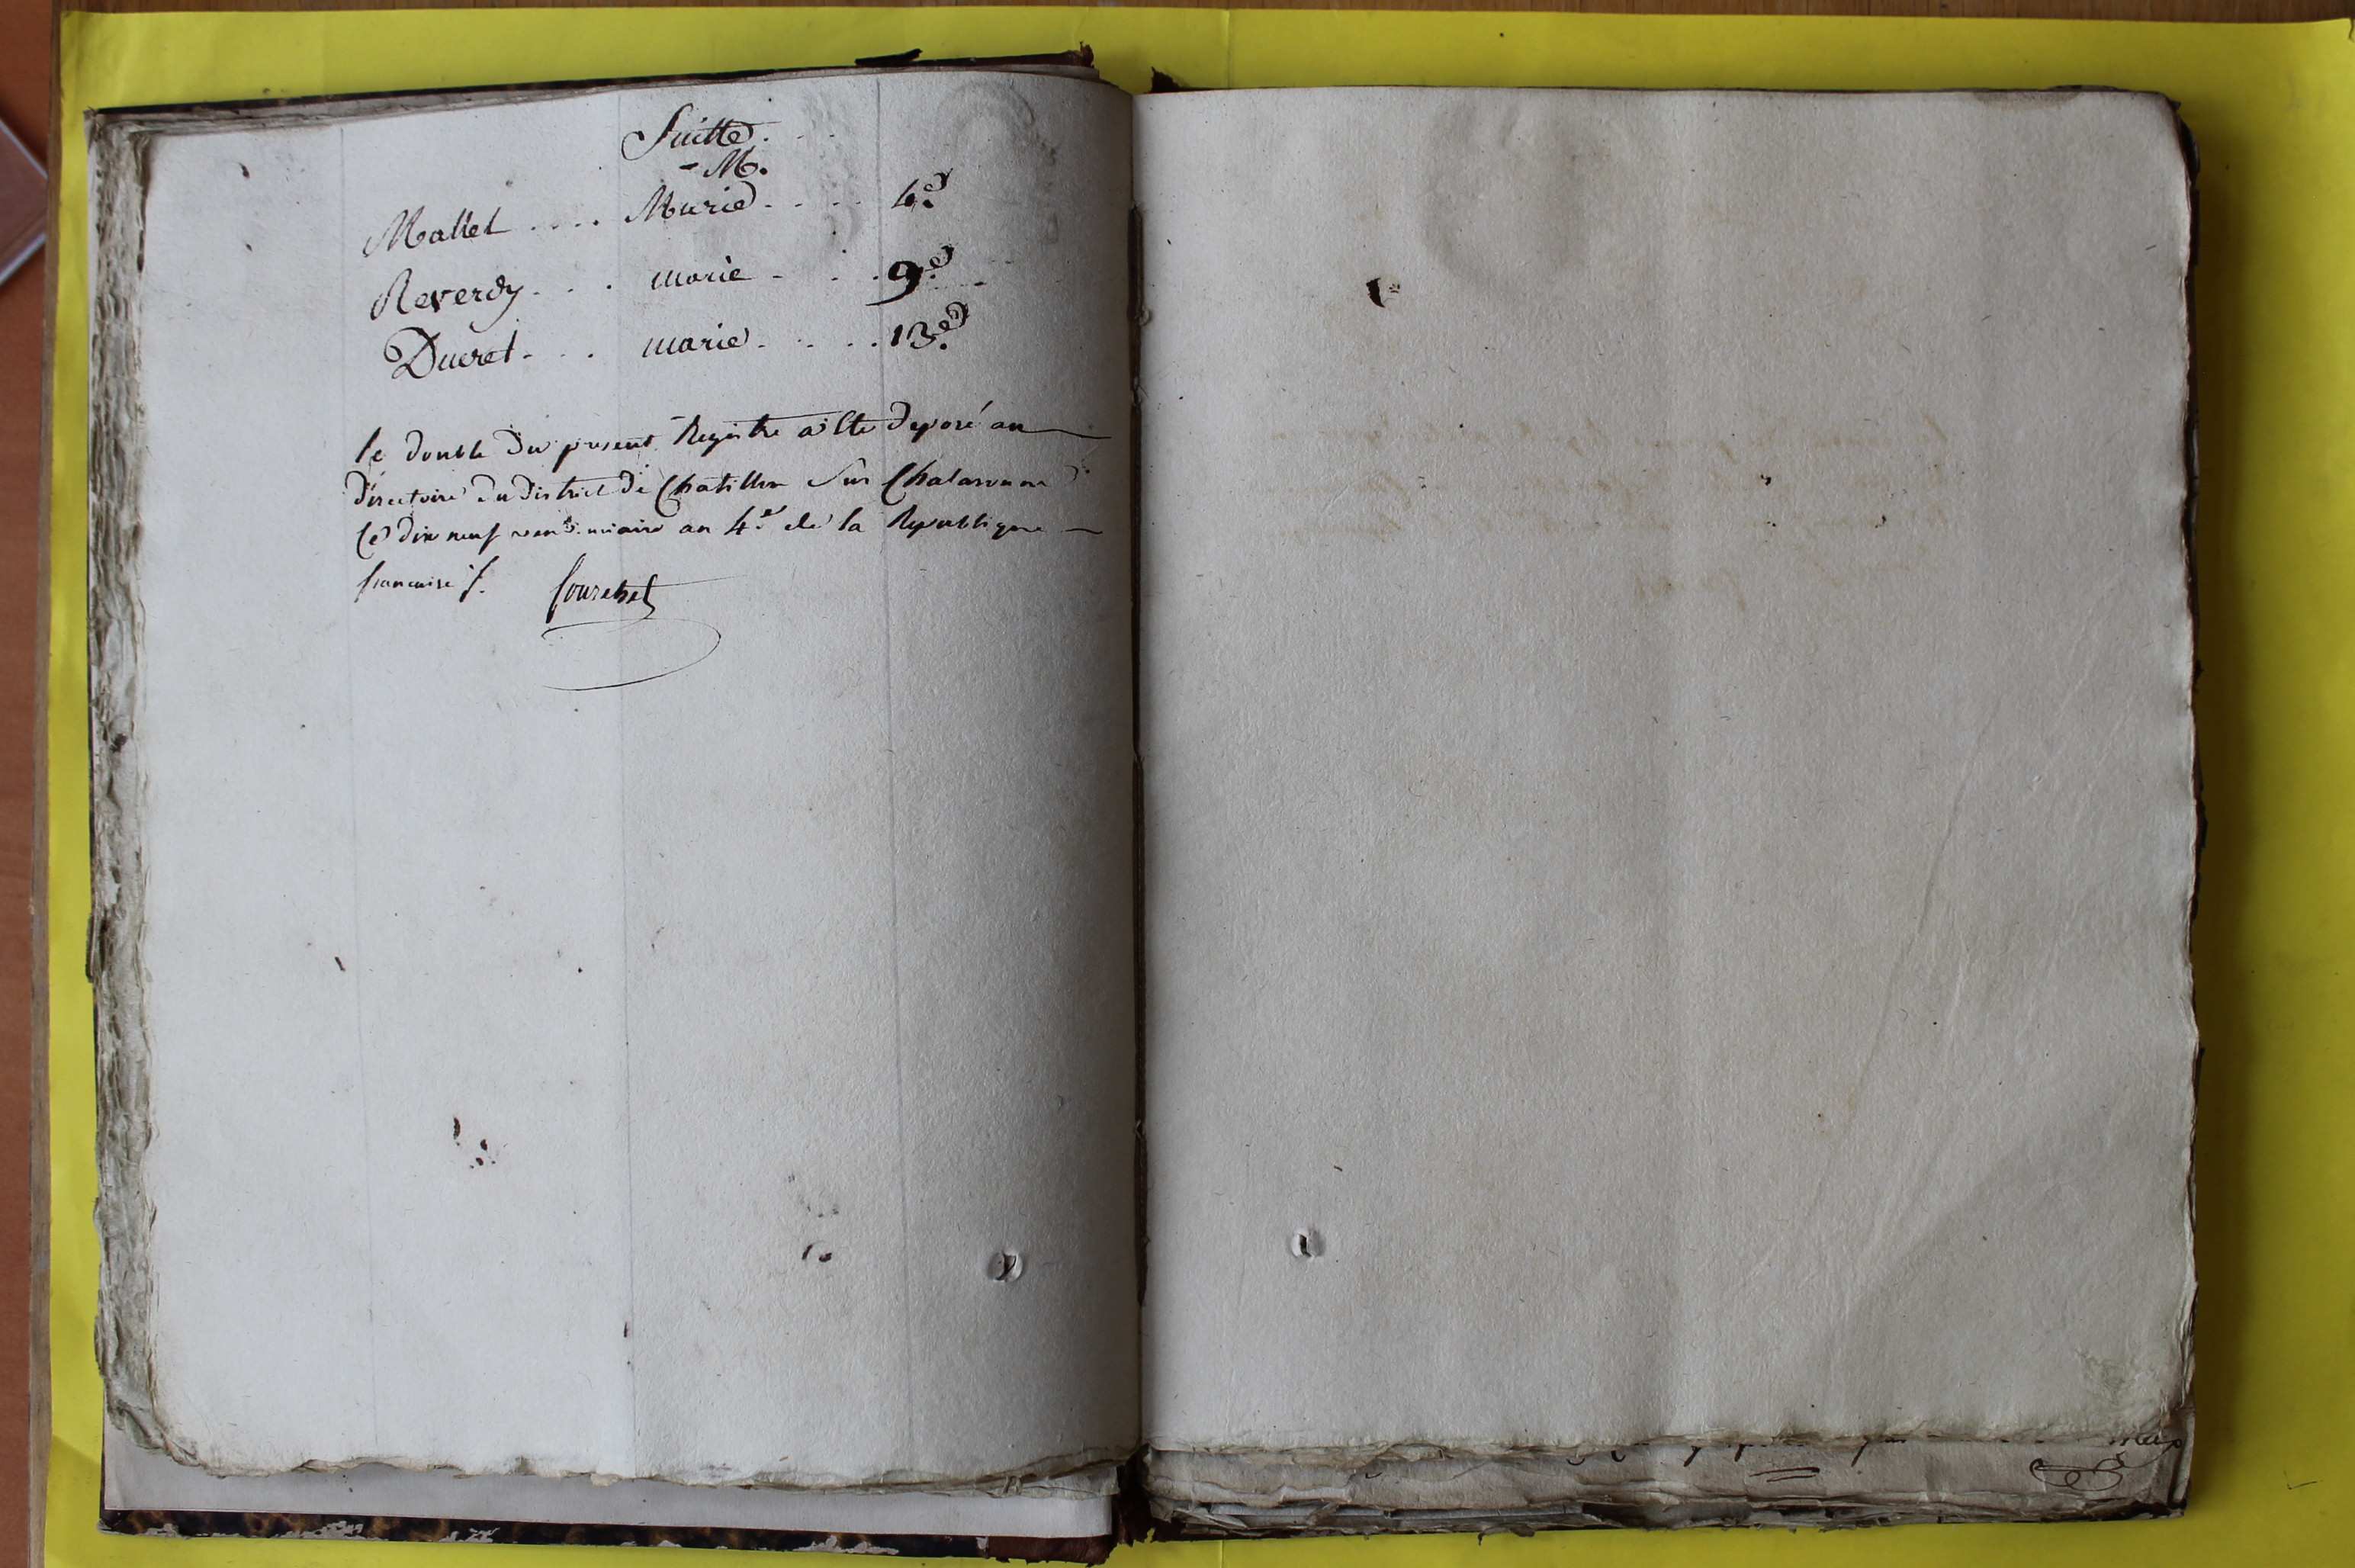 Suitte . . .
- M.
Mallet . . . . Marie . . . . 4.e
Reverdy . . . marie . . . 9.e
Ducret . . . marie . . . . 13.e
le double du present Registre a ete deposé au
directoire du district de Chatillon sur Chalaronne
le dix neuf vendemiaire an 4.e de la Republique
francaise